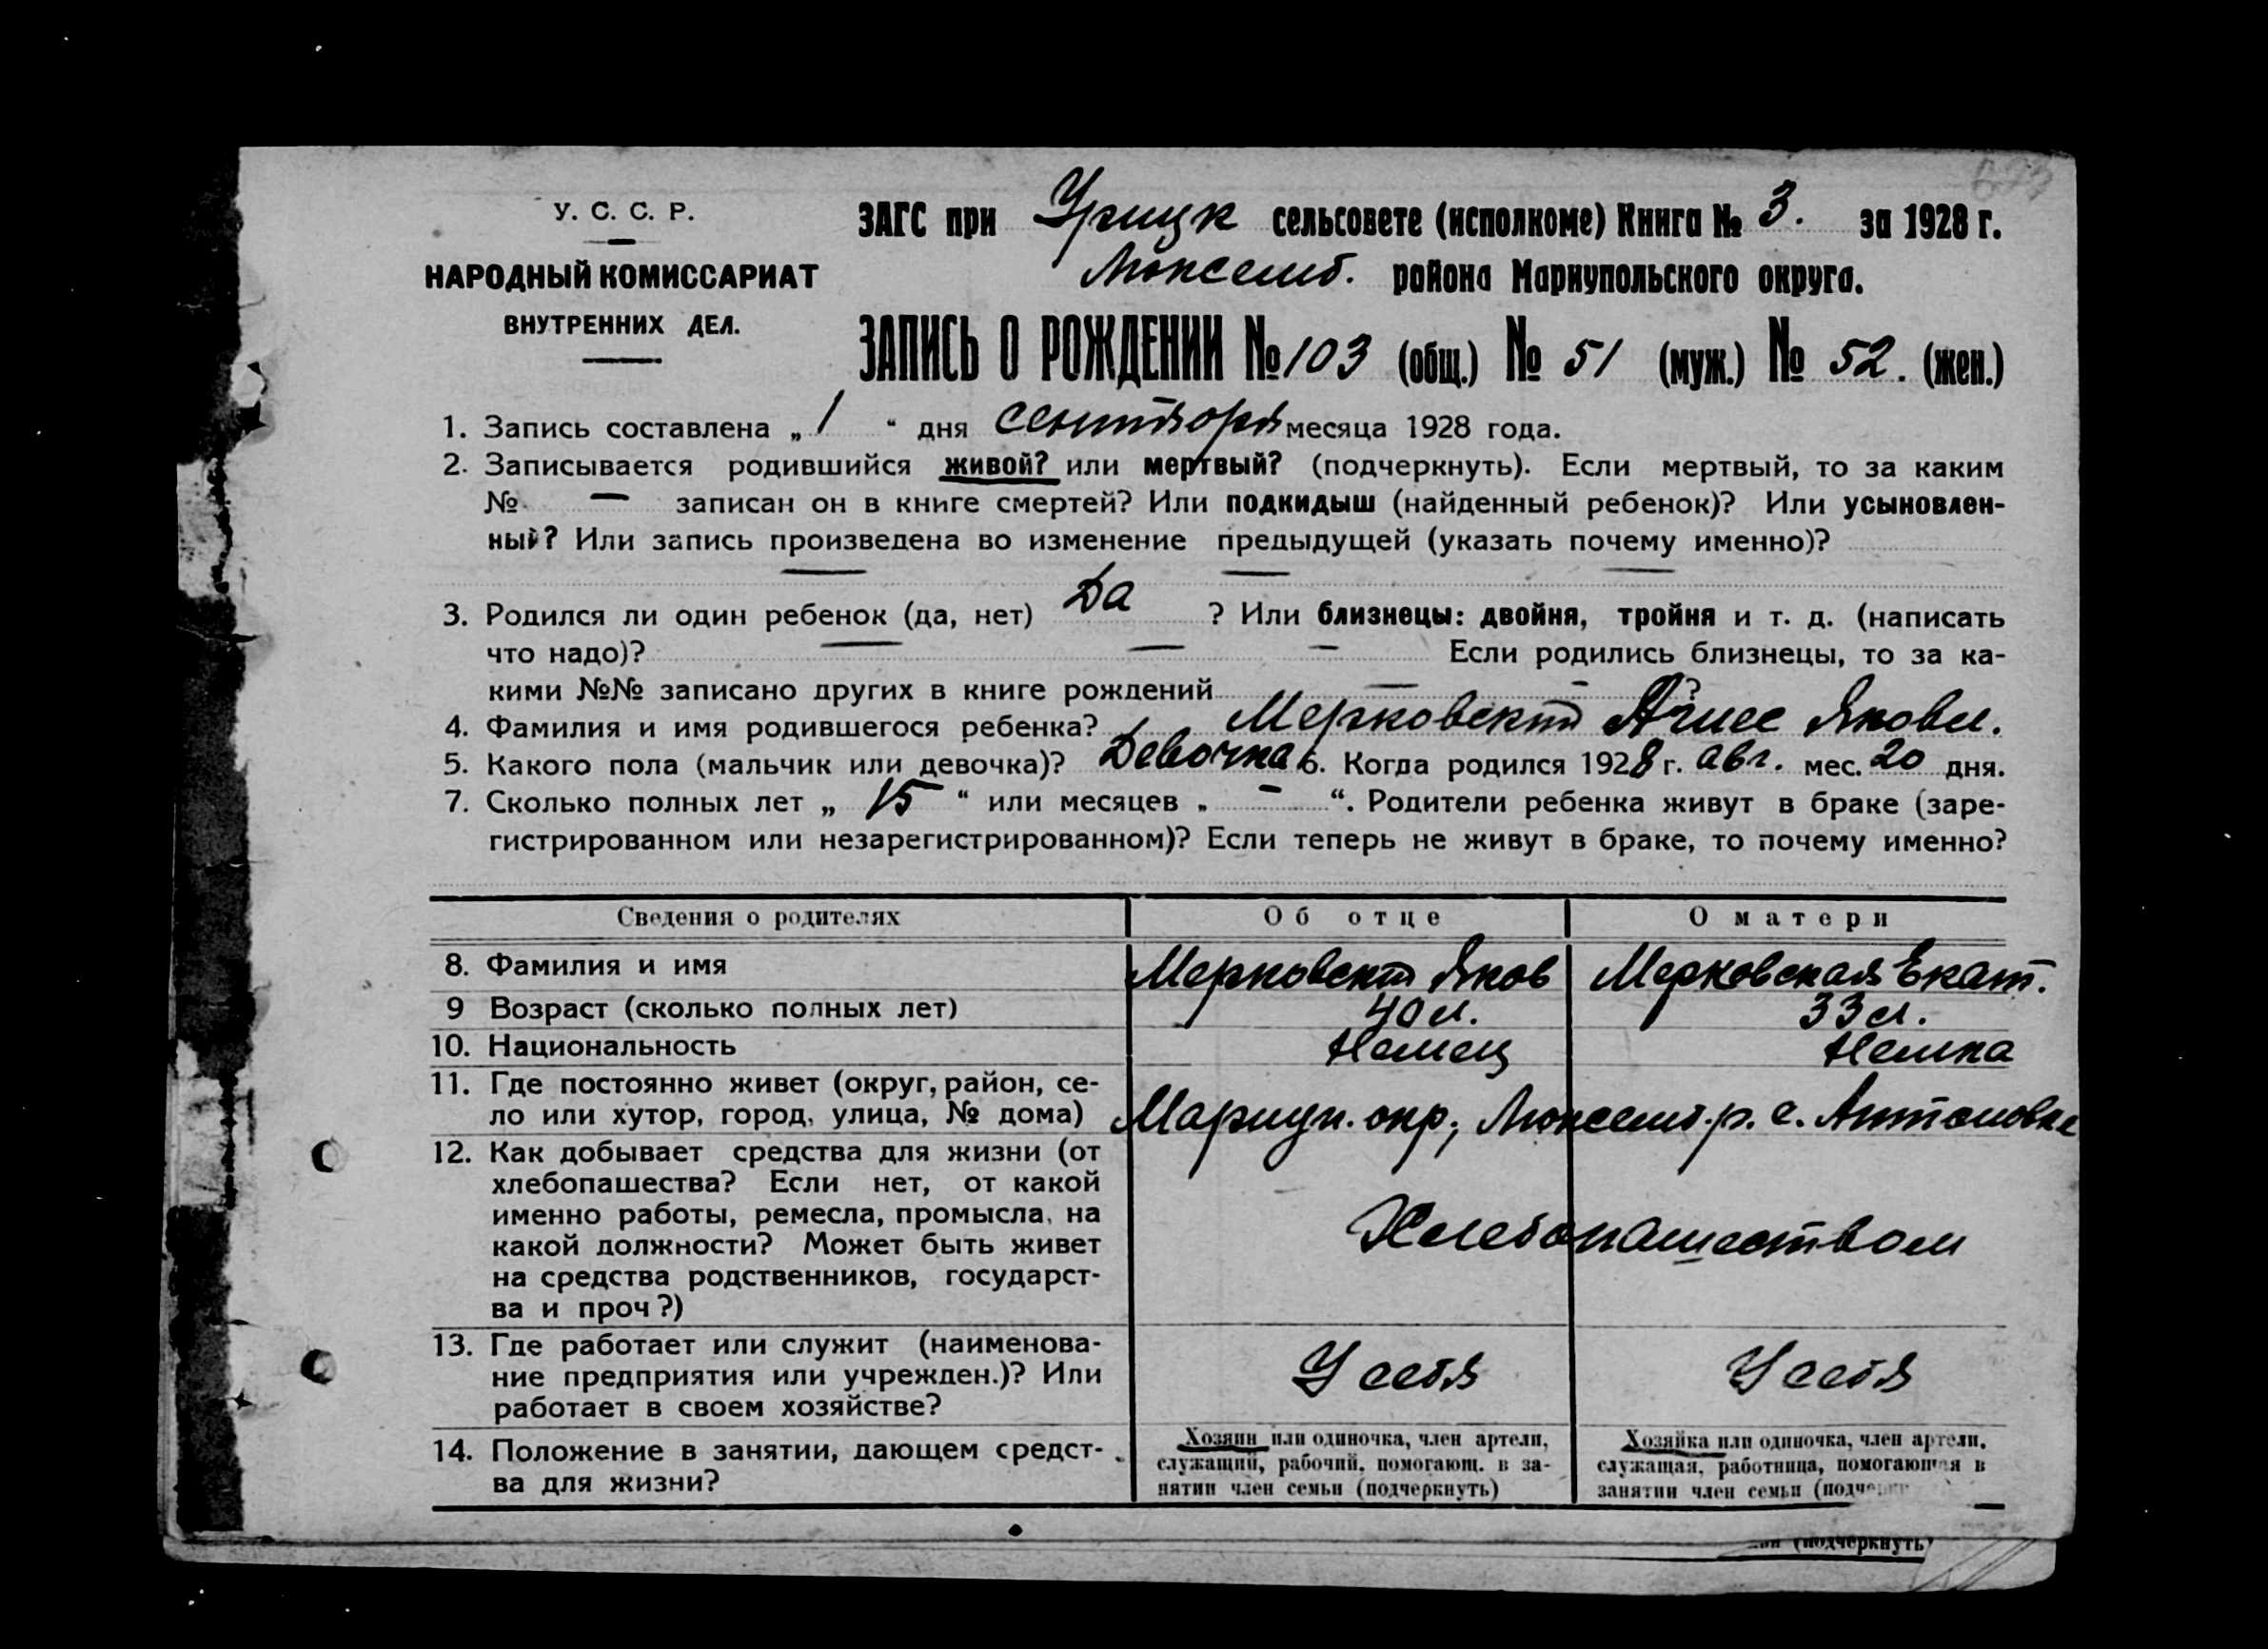 У. С. С. Р.
НАРОДНЫЙ КОМИССАРИАТ
ВНУТРЕННИХ ДЕЛ.
ЗАГС при Урицк сельсовете (исполкоме) Книга № 3. за 1928 г.
Люксемб. района Мариупольского округа.
ЗАПИСЬ О РОЖДЕНИИ № 103 (общ.) № 51 (муж.) № 52. (жен.)
1. Запись составлена „ 1 “ дня сентября месяца 1928 года.
2. Записывается родившийся живой? или мертвый? (подчеркнуть). Если мертвый, то за каким
№ — записан он в книге смертей? Или подкидыш (найденный ребенок)? Или усыновлен-
ный? Или запись произведена во изменение предыдущей (указать почему именно)?
— — —
3. Родился ли один ребенок (да, нет) Да ? Или близнецы: двойня, тройня и т. д. (написать
что надо)? — — — Если родились близнецы, то за ка-
кими №№ записано других в книге рождений — - ?
4. Фамилия и имя родившегося ребенка? Мерковский Агнес Яковл.
5. Какого пола (мальчик или девочка)? Девочка 6. Когда родился 1928 г. авг. мес. 20 дня.
7. Сколько полных лет „ 15 “ или месяцев „ - “. Родители ребенка живут в браке (заре-
гистрированном или незарегистрированном)? Если теперь не живут в браке, то почему именно?
Сведения о родителях Об отце О матери
8. Фамилия и имя Мерковский Яков Мерковская Екат.
9 Возраст (сколько полных лет) 40 л. 33 л.
10. Национальность Немец Немка
11. Где постоянно живет (округ, район, се-
ло или хутор, город, улица, № дома) Мариуп. окр., Люксемб. р. с. Антоновка
12. Как добывает средства для жизни (от
хлебопашества? Если нет, от какой
именно работы, ремесла, промысла, на
какой должности? Может быть живет
на средства родственников, государст-
ва и проч?)
Хлебопашеством
13. Где работает или служит (наименова-
ние предприятия или учрежден.)? Или
работает в своем хозяйстве?
У себя У себя
14. Положение в занятии, дающем средст-
ва для жизни?
Хозяин или одиночка, член артели,
служащий, рабочий, помогающ. в за-
нятии член семьи (подчеркнуть)
Хозяйка или одиночка, член артели,
служащая, работница, помогающая в
занятии член семьи
(подчеркнуть)